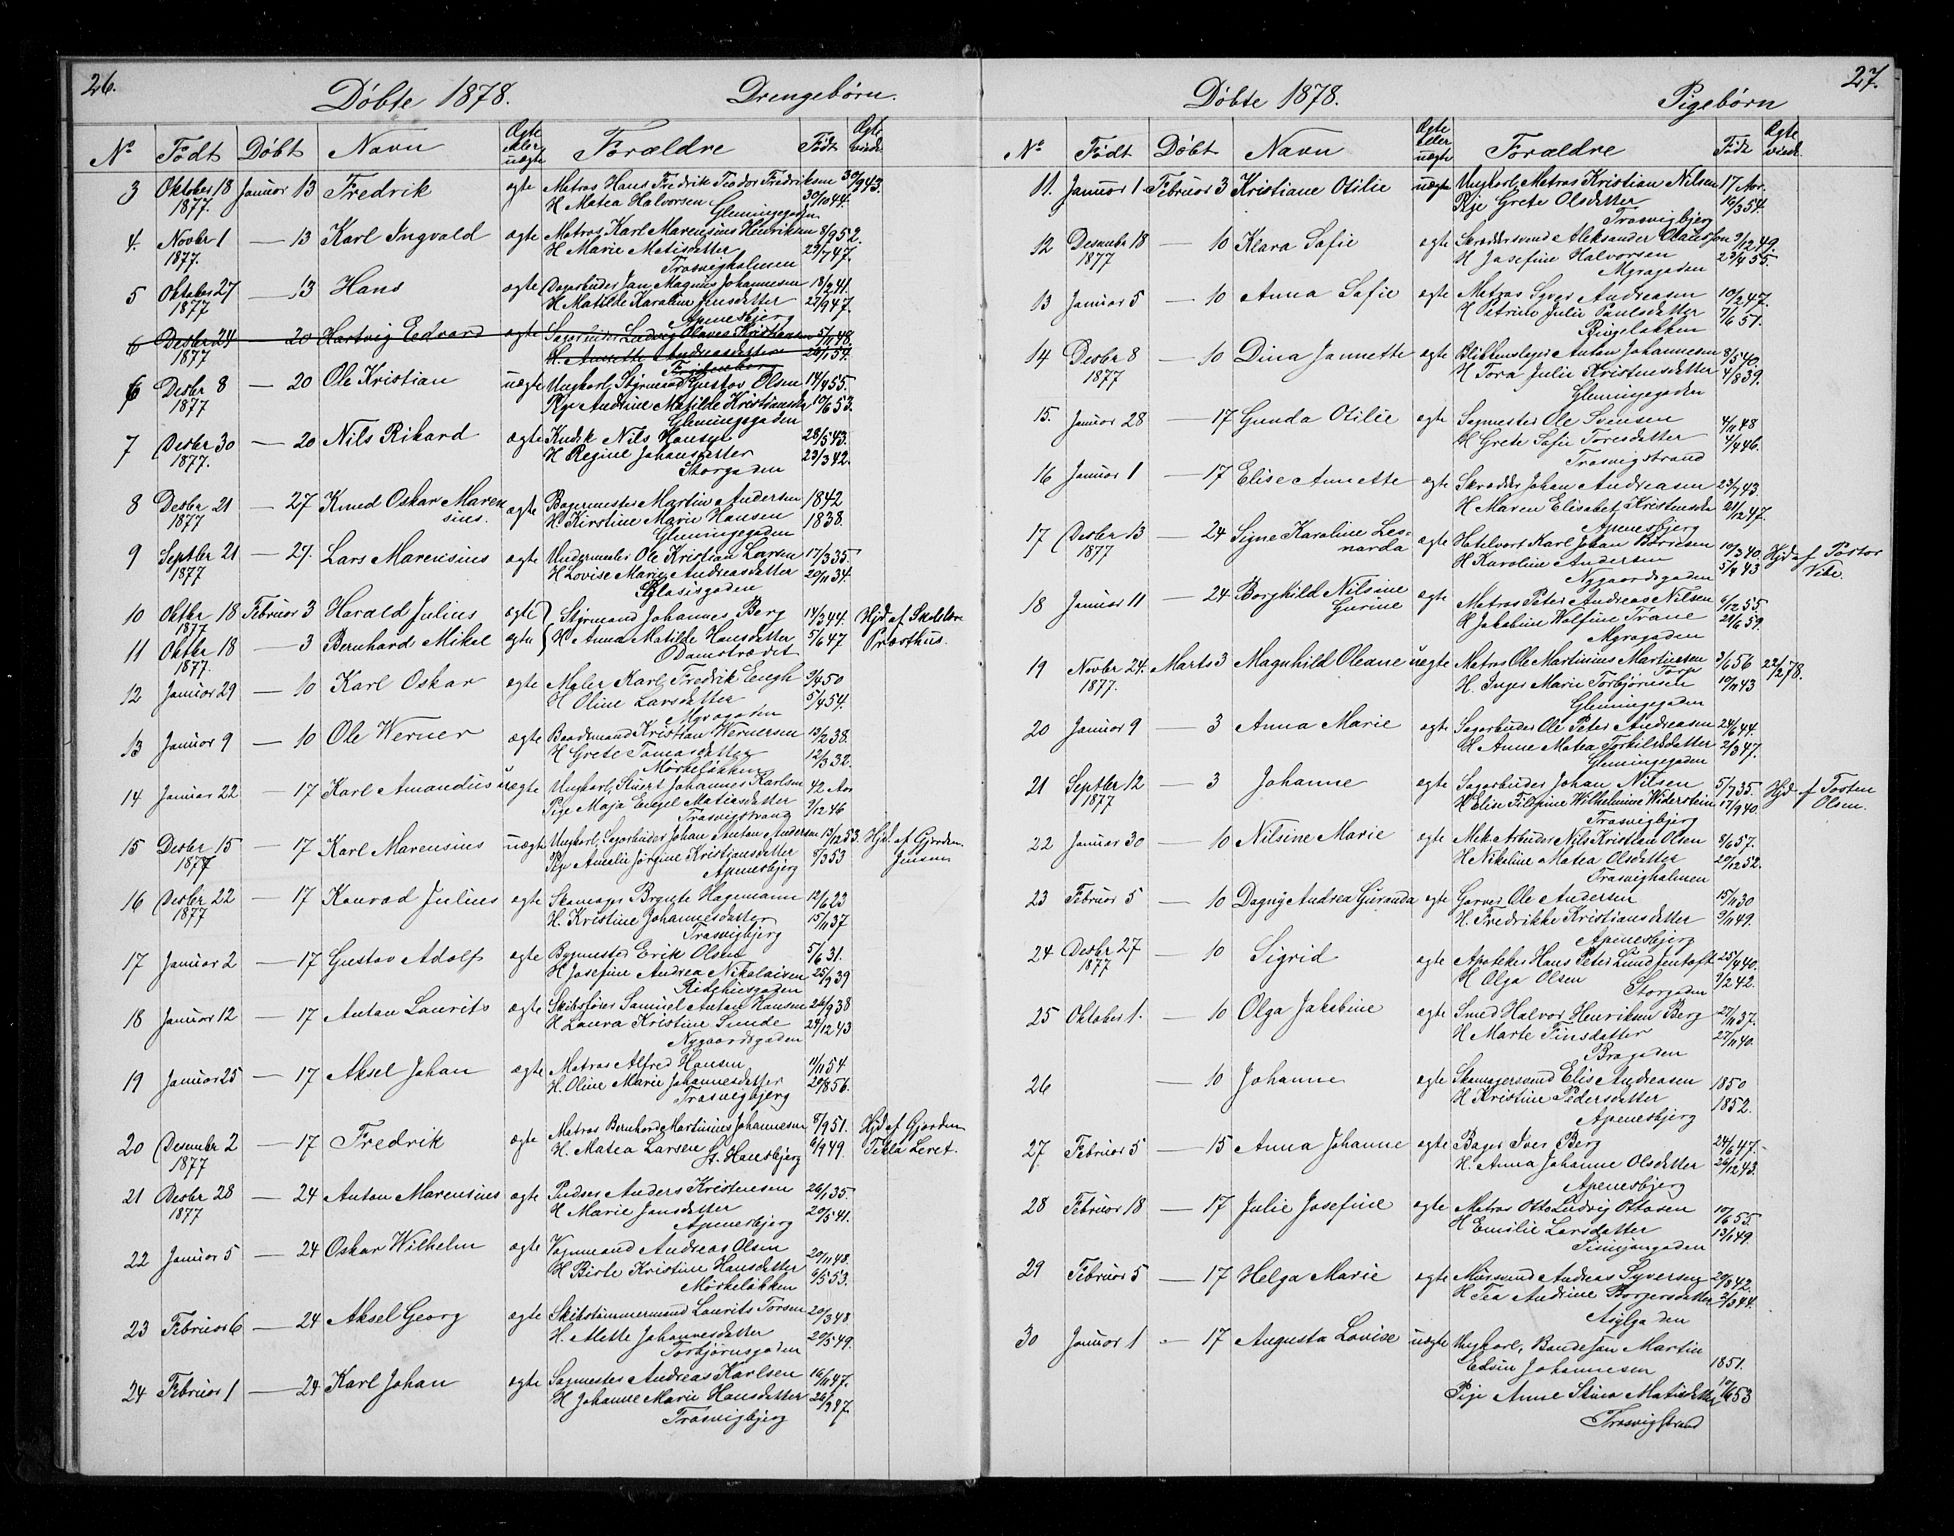 26.
Døbte 1878.
Drengebørn.
No Født Døbt Navn Ægte eller uægte Forældre Født Ægtevied
3 Oktober 18 1877. Januar 13 Fredrik ægte Matros Hans Fredrik Teodor Fredriksen 30/9 43.
H Matea Halvorsen 30/10 44.
Glemmingegaden
4. Novbr 1 1877. — 13 Karl Ingvald ægte Matros Karl Marensius Henriksen 8/9 52.
H Marie Matisdatter 29/7 47.
Trosvigholmen
5 Oktober 27 1877 — 13 Hans ægte Dagarbeider Jan Magnus Johannesen 13/2 41.
H Matilde Karoline Jensdatter 27/9 47.
Apenesbjerg
6 Desbr 24 1877 — 20 Hartvig Edvard ægte Sagarbeider Ludvig Olaves Kristiansen 5/11 48.
H. Annette Andreasdatter
6 Desbr 8 1877 — 20 Ole Kristian uægte Ungkarl, Styrmand Gustav Olsen 14/4 55.
Pige Andrine Matilde Kristiansdtr 10/6 53.
Glemingegaden
7 Desbr 30 1877. — 20 Nils Rikard ægte Kudsk Nils Hansen 28/5 43.
H Regine Johansdatter 23/3 42.
Storgaden
8 Desbr 21 1877 — 27 Knud Oskar Marensius. ægte Bagermester Martin Andersen 1842
H Kirstine Marie Hansen 1838.
Glemingegaden
9 Septbr 21 1877 — 27. Lars Marensius ægte Undermester Ole Kristian Larsen 17/3 35.
H Lovise Marie Andreasdatter 20/11 34.
Glasisgaden
10 Oktbr 18 1877 Februar 3 Harald Julius ægte Styrmand Johannes Berg 14/3 44. Hjd af Skolelærer
11 Oktbr 18 1877. — 3 Bernhard Mikal ægte H Anna Matilde Hansdatter 5/6 47 Præsthus.
Damstrædet
12 Januar 29 — 10 Karl Oskar ægte Maler Karl Fredrik Engh 3/6 50
H Oline Larsdatter 5/4 54.
Myragaden
13 Januar 9 — 10 Ole Werner ægte Baadsmand Kristian Wernersen 13/2 38.
H Grete Tomasdatter 12/3 32.
Mørkeløkken
14 Januar 22 — 17 Karl Amandus uægte Ungkarl, Stuert Johannes Karlsen 42 Aar
Pige Maja Engel Matiasdatter 3/12 46
Trosvigstrand
15 Desbr 15 1877 — 17 Karl Marensius uægte Ungkarl, Sagarbeider Johan Anton Andersen 13/12 53. Hjd. af Gjordem.
Pige Amalie Jørgine Kristiansdatter 5/3 53 Jensen
Apenesbjerg
16 Desbr 22 1877 — 17 Konrad Julius ægte Skomager Brynte Hagemann 12/6 23
H. Kristine Johannesdatter 15/11 37
Trosvigbjerg
17 Januar 2 — 17 Gustav Adolf ægte Bygmester Erik Olsen 5/6 31.
H Josefine Andrea Nikolaisen 25/9 39
Ridehusgaden
18 Januar 12 — 17 Anton Laurits ægte Skibsfører Samuel Anton Hansen 26/9 38
H Laura Kristine Sunde 24/12 43
Nygaardsgaden
19 Januar 25 — 17 Aksel Johan ægte Matros Alfred Hansen 11/11 54
H. Oline Marie Johannesdatter 20/8 56.
Trosvigbjerg
20 Desember 2 1877 — 17 Fredrik ægte Matros Bernhard Martinius Johannesen 8/9 51. Hjd af Gjordem
H. Matea Larsen St. Hansbjerg 6/9 49. Tekla Leret.
21 Desbr 28 1877 — 24 Anton Marensius ægte Pudser Anders Kristensen 26/1 35.
H Marie Jansdatter 20/5 41.
Apenesbjerg
22 Januar 5 — 24 Oskar Wilhelm ægte Vognmand Andreas Olsen 20/11 48.
H Birte Kristine Hansdatter 6/5 53.
Mørkeløkken
23 Februar 6 — 24 Aksel Georg ægte Skibstømmermand Laurits Torsen 20/3 48
H. Mette Johannesdatter 20/5 49.
Torbjørnsgaden
24 Februar 1 — 24 Karl Johan ægte Sagmester Andreas Karlsen 16/6 47.
H Johanne Marie Hansdatter
Trosvigbjerg
27.
Døbte 1878.
Pigebørn
No Født Døbt Navn Ægte eller uægte Forældre Født Ægtevied
11. Januar 1 Februar 3 Kristiane Otilie uægte Ungkarl, Matros Kristian Nilsen 17 Aar.
Pige Grete Olsdatter 16/3 54.
Trosvigbjerg
12 Desember 18 1877 — 10 Klara Sofie ægte Skræddersvend Aleksander Olaussen 9/12 49.
H Josefine Halvorsen 23/4 55.
Myragaden
13 Januar 5 — 10 Anna Sofie ægte Matros Syver Andreasen 10/2 47.
H Petrine Julie Paulsdatter 7/6 51.
Bingeløkken
14 Desbr 8 1877 — 10 Dina Jannette ægte Blikkenslager Anton Johannesen 8/5 40.
H Tora Julie Kristensdatter 4/8 39.
Glemingegaden
15. Januar 28 — 17 Gunda Otilie ægte Sagmester Ole Svensen 4/11 48
H Grete Sofie Toresdatter 4/4 46.
Trosvigstrand
16 Januar 1 — 17 Elise Annette ægte Skrædder Johan Andreasen 23/7 43.
H Maren Elisabet Kristensdtr 21/12 47.
Apenesbjerg
17 Desbr 13 1877 — 24 Signe Karoline Leonarda ægte Hotelvært Karl Johan Børresen 10/3 40. Hjd af Pastor
H Karoline Andersen 5/4 43 Vibe.
Nygaardsgaden
18 Januar 11 — 24 Borghild Nilsine Gurine ægte Matros Peter Andreas Nilsen 6/12 55
H Jakobine Wolfine Trane 21/6 59.
Myragaden
19 Novbr 24. 1877. Marts 3 Magnhild Oleane uægte Matros Ole Martinius Martinsen Torp 3/6 56 22/2 78.
H. Inger Marie Torbjørnsen 10/11 43
Glemingegaden
20 Januar 9 — 3 Anna Marie ægte Sagarbeider Ole Peter Andreasen 24/6 44.
H Anne Matea Torkilsdatter 2/3 47.
Glemingegaden
21 Septbr 12 1877 — 3 Johanne ægte Sagarbeider Johan Nilsen 5/7 35. Hjd af Torsten
H Elise Filippine Wilhelmine Widerstein 17/9 40. Olsen.
Trosvigbjerg
22 Januar 30 — 10 Nilsine Marie ægte Mek Arbeider Nils Kristian Olsen 8/6 57.
H Nikoline Matea Olsdatter 20/12 52.
Trosvigholmen
23 Februar 5 — 10 Dagny Andrea Guranda ægte Garver Ole Andersen 15/11 30
H. Fredrikke Kristiansdatter 9/11 49.
Apenesbjerg
24 Desbr 27 1877 — 10 Sigrid ægte Apoteker Hans Peter Lund Jentoft 25/4 40.
H Olga Olsen 9/2 42.
Storgaden
25 Oktober 1. — 10 Olga Jakobine ægte Smed Halvor Henriksen Berg 27/11 37.
H Marte Finsdatter 27/11 40.
Bragaden
26 — 10 Johanne ægte Skomagersvend Elis Andreasen 1850
H Kristine Pedersdatter 1852.
Apenesbjerg
27. Februar 5 — 15 Anna Johanne ægte Bager Iver Berg 24/6 47.
H. Anna Johanne Olsdatter 26/12 43.
Apenesbjerg
28 Februar 18 — 17 Julie Josefine ægte Matros Otto Ludvig Ottosen 10/6 55.
H Emilie Larsdatter 13/1 49.
29 Februar 5 — 17 Helga Marie ægte Mursvend Andreas Syversen 29/8 42.
H Tea Andrine Borgersdatter 2/3 44.
Asylgaden
30 Januar 1 — 17 Augusta Lovise uægte Ungkarl, Bandesjan Martin
Edvin Johannesen 1851.
Pige Anne Stina Matisdatter 10/6 53
Trosvigstrand